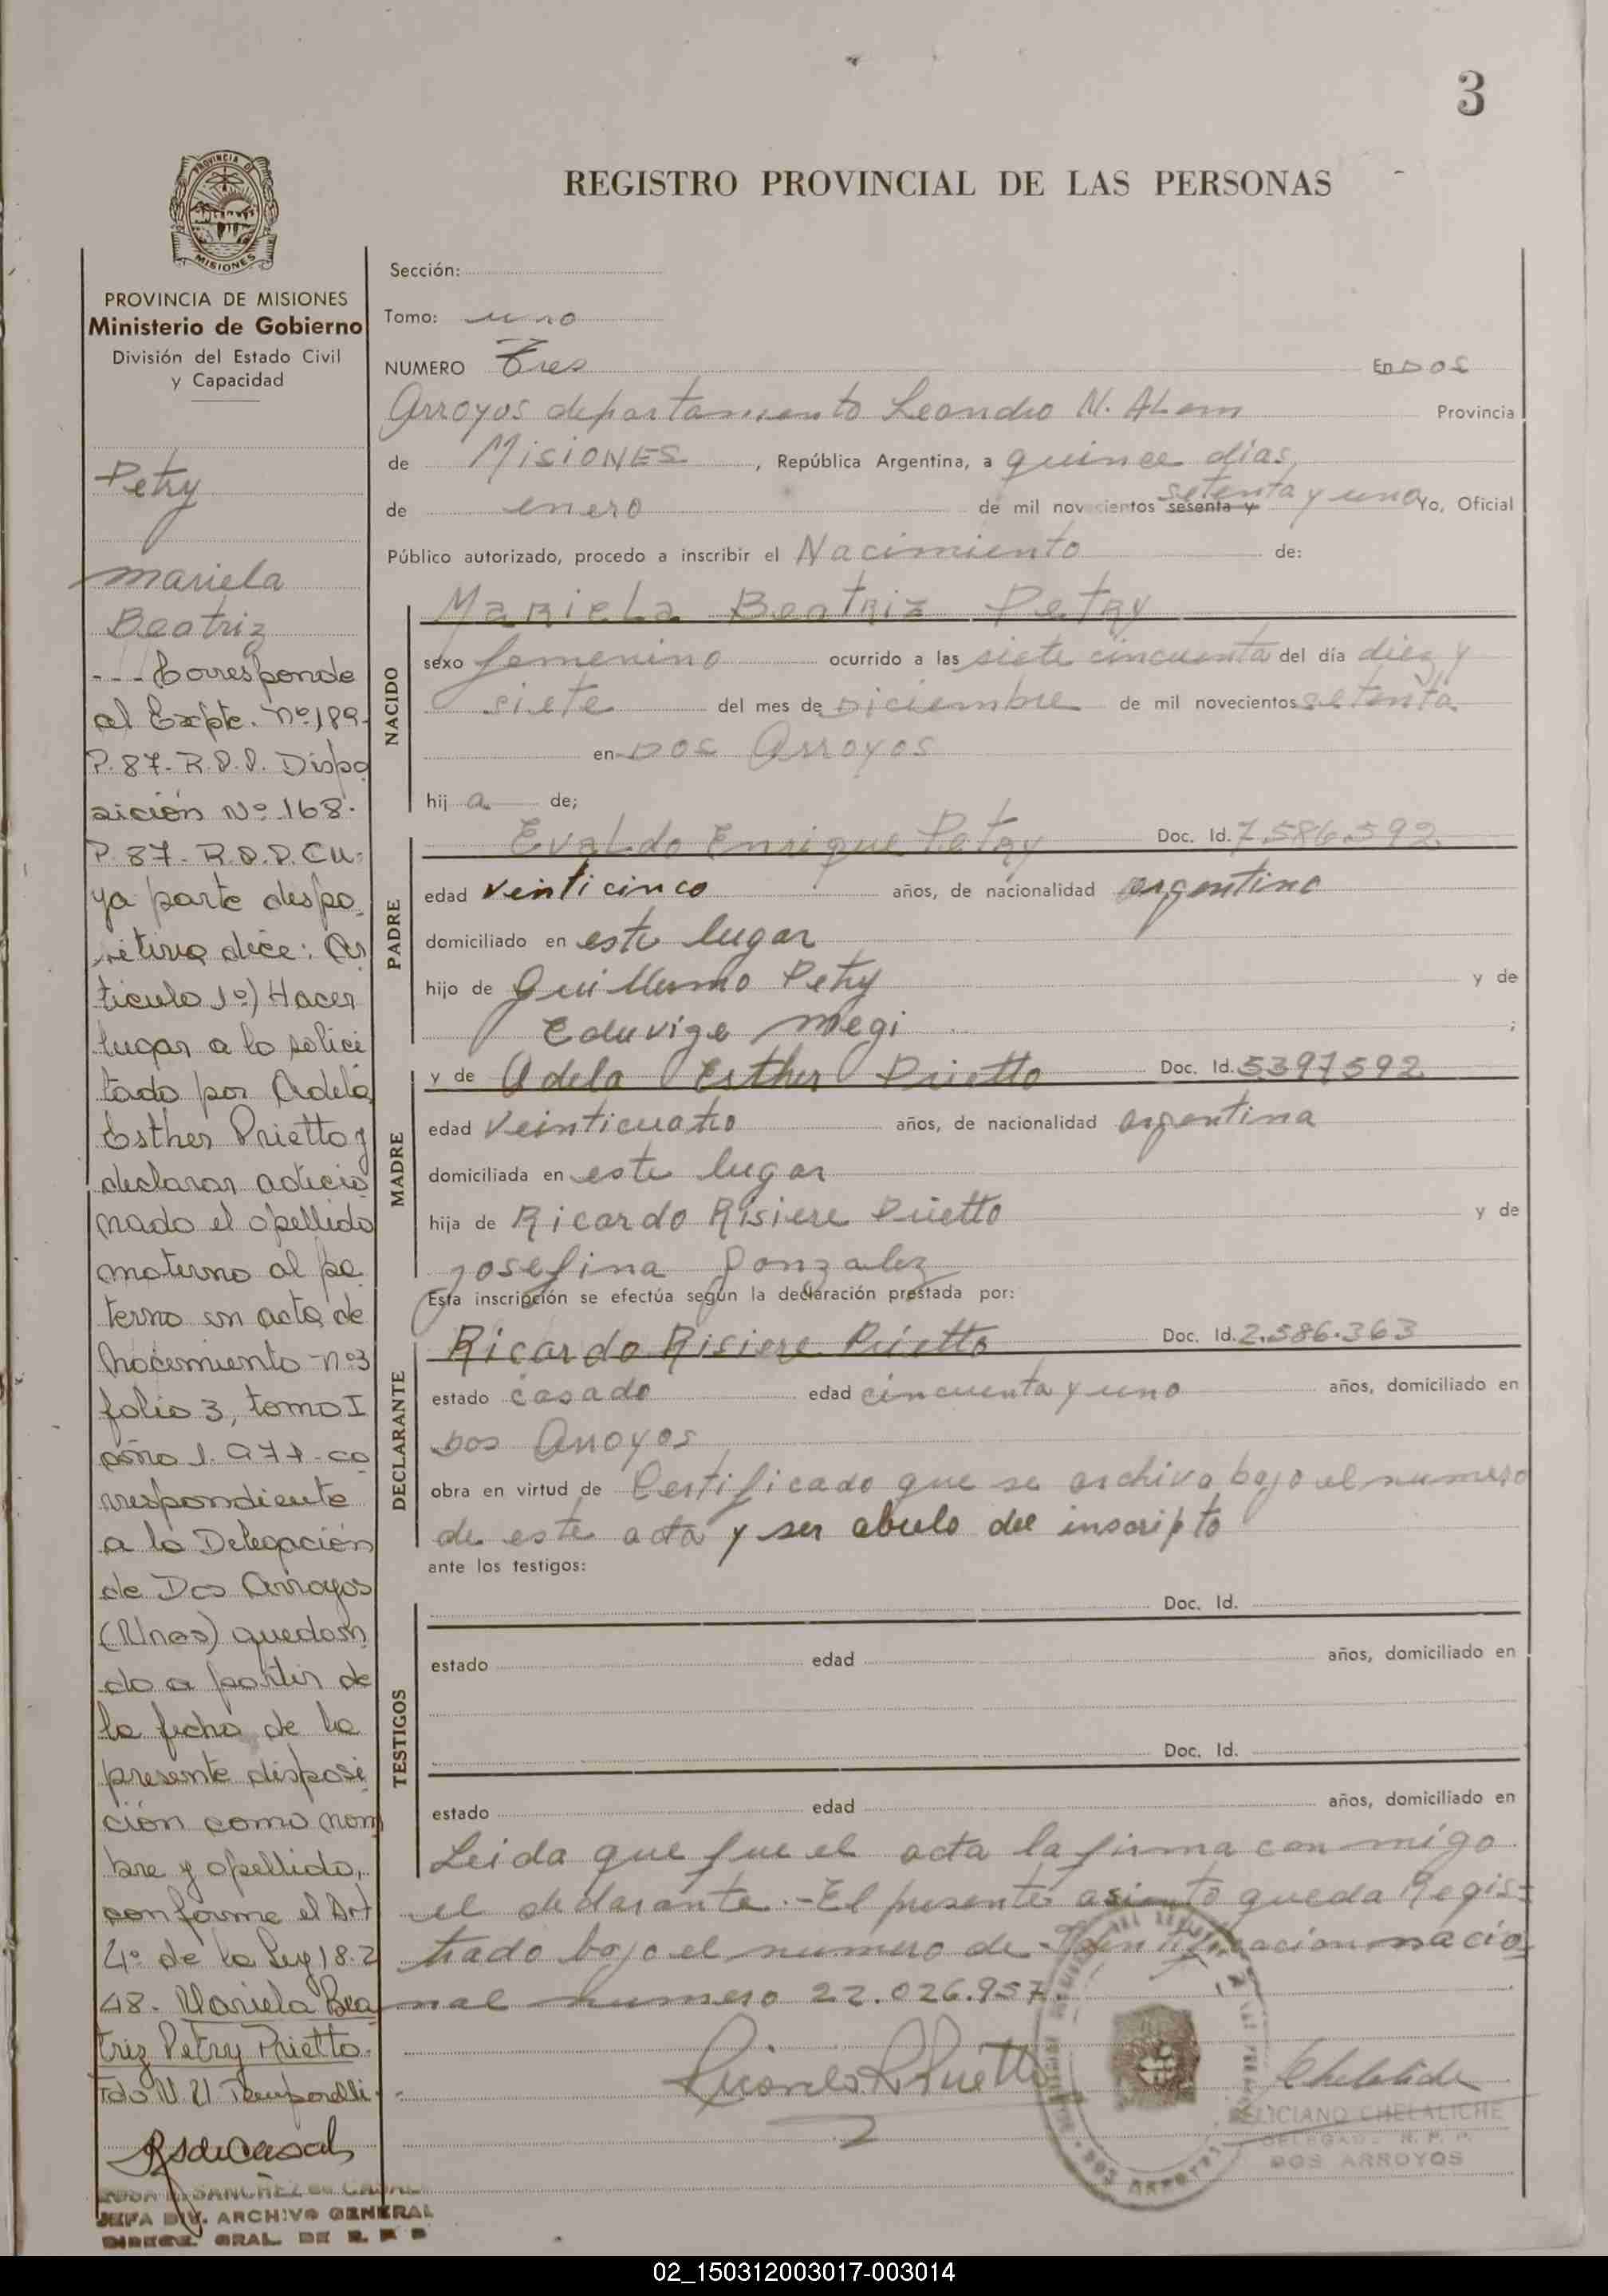 3
PROVINCIA DE
MISIONES
REGISTRO PROVINCIAL DE LAS PERSONAS
PROVINCIA DE MISIONES
Ministerio de Gobierno
División del Estado Civil
y Capacidad
Petry
Mariela
Beatriz
--- Corresponde
al Expte. nº 189-
P. 87- R.P.P. Dispo
sición Nº 168-
P. 87- R.P.P. Cu-
ya parte dispo-
sitiva dice: Ar
tículo 1º) Hacer
lugar a lo solici
tado por Adela
Esther Prietto y
declarar adicio
nado el apellido
materno al pa
terno en acta de
Nacimiento nº 3
folio 3, tomo I
año 1.971- co
rrespondiente
a la Delegación
de Dos Arroyos
(Mnes) quedan
do a partir de
la fecha de la
presente disposi
ción como nom
bre y apellido,
conforme el Art
4º de la Ley 18.2
48. Mariela Bea
triz Petry Prietto.
Fdo
JEFA DIV. ARCHIVO GENERAL
DIRECC. GRAL. DE R. P. P
Sección:
Tomo: uno
NUMERO Tres En DOS
Arroyos departamento Leandro N. ALem Provincia
de MISIONES, República Argentina, a quince días,
de enero de mil novecientos sesenta y setenta y uno Yo, Oficial
Público autorizado, procedo a inscribir el Nacimiento de:
NACIDO
Mariela Beatriz Petry
sexo femenino ocurrido a las siete cincuenta del día diez y
siete del mes de Diciembre de mil novecientos setenta
en DOS Arroyos
hij a de;
PADRE
Evaldo Enrique Petry Doc. Id. 7.586.592
edad veinticinco años, de nacionalidad argentino
domiciliado en este lugar
hijo de Guillermo Petry y de
Eduvige Megi ;
MADRE
y de Adela Esther Prietto Doc. Id. 5397592
edad veinticuatro años, de nacionalidad argentina
domiciliada en este lugar
hija de Ricardo Risiere Prietto y de
Josefina Gonzalez
Esta inscripción se efectúa según la declaración prestada por:
DECLARANTE
Ricardo Risiere Prietto Doc. Id. 2.586.363
estado casado edad cincuenta y uno años, domiciliado en
Dos Arroyos
obra en virtud de Certificado que se archiva bajo el numero
de este acta y ser abuelo del inscripto
ante los testigos:
TESTIGOS
Doc. Id.
estado edad años, domiciliado en
Doc. Id.
estado edad años, domiciliado en
Leida que fue el acta la firma con migo
el declarante.-El presente asiento queda Regis-
trado bajo el numero de Identificacion nacio
nal numero 22.026.957.
FELICIANO CHELALICHE
DELEGAD. R. P. P.
DOS ARROYOS
02_150312003017-003014